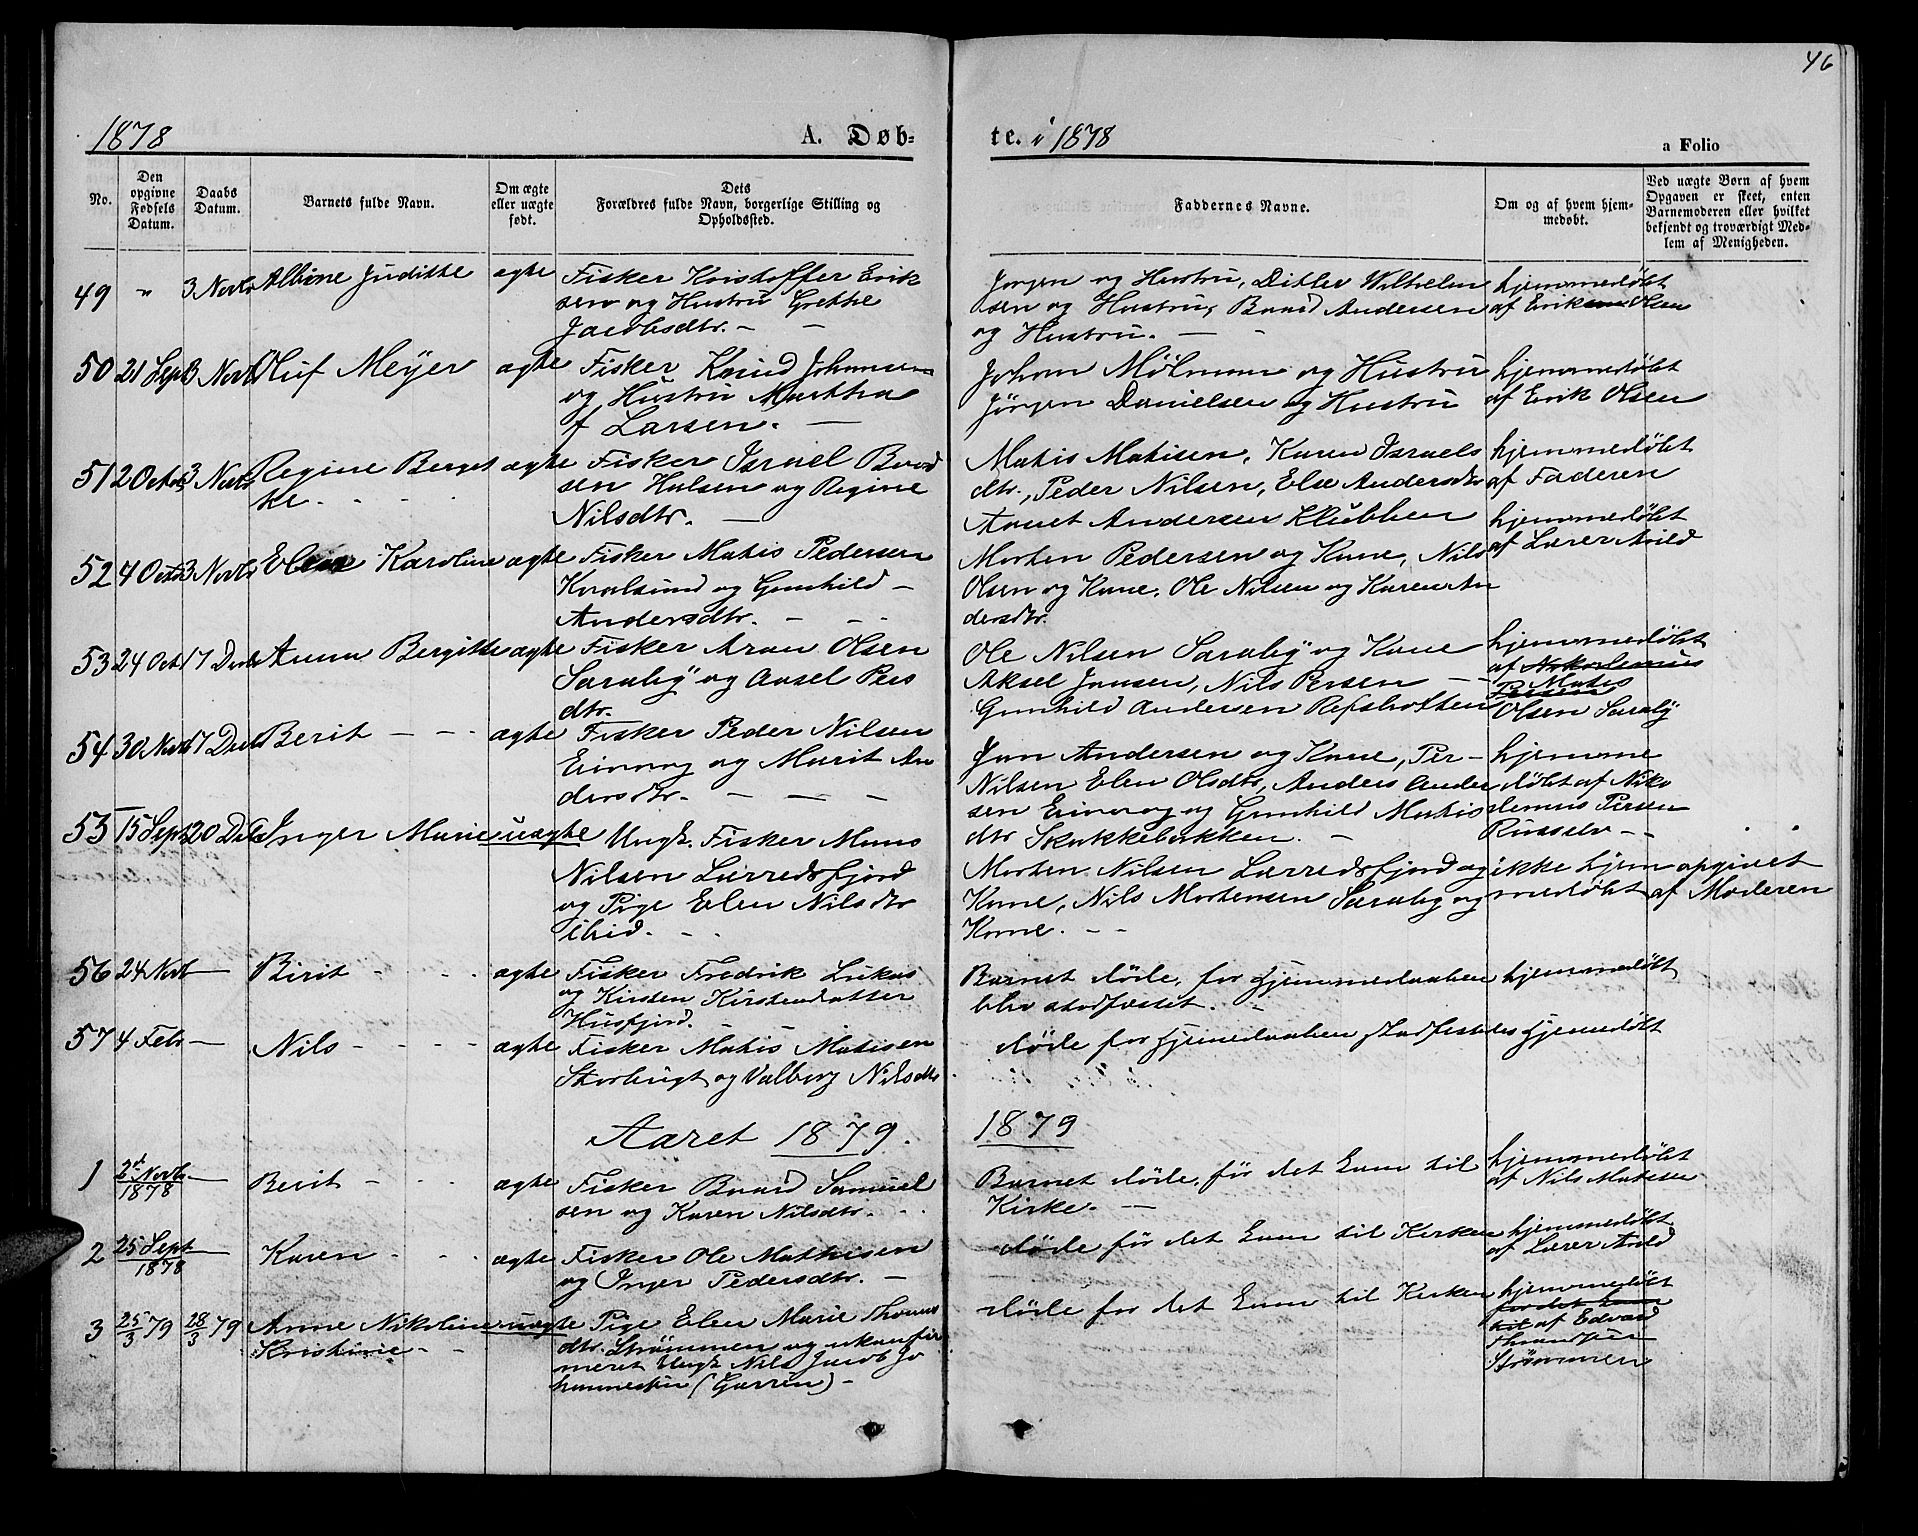 46
1878
A. Døb-
te. i 1878
a Folio
No.
Den opgivne Fødsels Datum.
Daabs Datum.
Barnets fulde Navn.
Om ægte eller uægte født.
Dets Forældres fulde Navn, borgerlige Stilling og Opholdssted.
Faddernes Navne.
Om og af hvem hjem-
medøbt.
Ved uægte Børn af hvem
Opgaven er skeet, enten
Barnemoderen eller hvilket
bekjendt og troværdigt Med-
lem af Menigheden.
49 " 3 Novbr Albine Judithe ægte Fisker Kristoffer Erik
sen og Hustru Grethe
Jacobsdtr. — —
Jørgen og Hustru, Ditlev Wilhelm
sen og Hustru, Baard Andersen
og Hustru. — —
hjemmedøbt
af Erik Olsen
50 21 Sept 3 Novb Oluf Meyer ægte Fisker Knud Johansen
og Hustru Marthea
f Larsen. —
Johan Mölman og Hustru
Jörgen Danielsen og Hustru
hjemmedøbt
af Erik Olsen
51 2 Octob 3 Novb Regine Berget
he. - - -
ægte Fisker Israel Baard
sen Halsen og Regine
Nilsdtr. —
Matis Matisen, Karen Israels
dtr., Peder Nilsen, Else Andersdtr
Anut Andersen Klubben
hjemmedøbt
af Faderen
52 4 Octb 3 Novb Elen Karoline ægte Fisker Matis Pedersen
Kvalsund og Gunhild —
Andersdtr. — - -
Morten Pedersen og Kone, Nils
Olsen og Kone, Ole Nilsen og Karen An
dersdtr.
hjemmedøbt
af Lærer Avild
53 24 Octb 17 Decb Anna Bergitte ægte Fisker Aron Olsen
Saraby og Ansel Pers
dtr.
Ole Nilsen Saraby og Kone
Aksel Jansen, Nils Persen — -
Gunhild Andersen Refsbotten
hjemmedøbt
af Nikodemus
Persen Matis
Olsen Saraby
54 30 Novb 17 Decb Berit - - - ægte Fisker Peder Nilsen
Eivovog og Marit An
dersdtr. — — —
Jon Andersen og Kone, Per —
Nilsen Elen Olsdtr, Anders Ander
sen Eivovog og Gunhild Matis
dtr Skakkebakken. —
hjemme
döbt af Niko
demus Persen
Russelv - -
55 15 Sept 20 Decb Inger Marie uægte Ungk. Fisker Mons
Nilsen Lærredsfjord
og Pige Elen Nilsdtr
ibid. - -
Morten Nilsen Lærredsfjord og
Kone, Nils Mortensen Saraby og
Kone. - -
ikke hjem
medøbt
opgivet
af Moderen
56 24 Novb — Birit - - - ægte Fisker Fredrik Lukas
og Kirsten Kirstendatter
Husfjord. — —
Barnet döde, för Hjemmedaaben
blev stadfæstet. -
hjemmedøbt
57 4 Febr — Nils - - - - ægte Fisker Matis Matisen
Storbugt og Valborg Nilsdtr.
döde før Hjemedaaben stadfestedes
Hjemedøbt
Aaret 1879.
1879
1 2d Novb 1878 — Berit - - - ægte Fisker Baard Samuel
sen og Karen Nilsdtr. - -
Barnet döde, för det kom til
Kirke. —
hjemmedøbt
af Nils Matisen
2 25 Sept 1878 — Karen - - - ægte Fisker Ole Mathisen
og Inger Pedersdtr. —
döde för det kom til Kirken
hjemmedøbt
af Lærer Avild
3 25/3 79 28/3 79 Anne Nikoline
Kristine - -
uægte Pige Elen Marie Thomas
dtr. Strømmen og ukonfir
meret Ungk Nils Jacob Jo
hannesen (Garren) —
döde før det kom til Kirken
hjemmedøbt
for det kom
til af Edvard
Strømmen